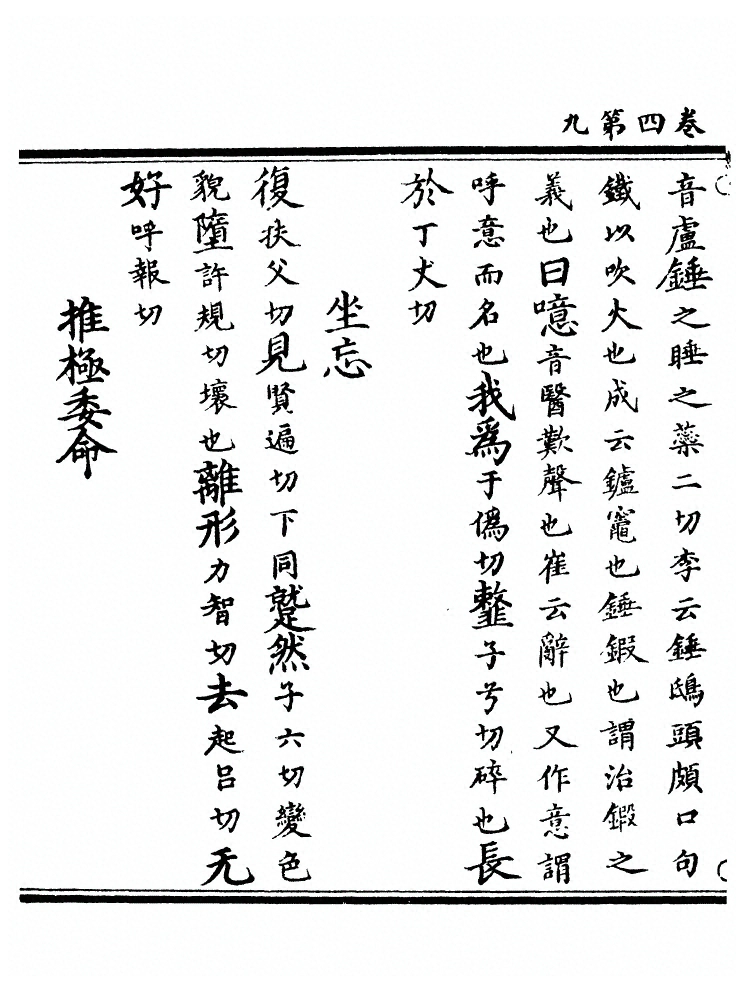 九第四卷
音盧錘之睡之蘂二切李云錘鴟頭頗口句
鐵以吹火也成云鑪竈也錘鍜也謂治鍜之
義也曰噫音醫歎聲也崔云辭也又作意謂
呼意而名也我為于僞切䪠子兮切碎也長
於丁丈切
坐忘
復扶父切見賢遍切下同蹵然子六切變色
貌墮許規切壞也離形力智切去起呂切无
好呼報切
推極委命